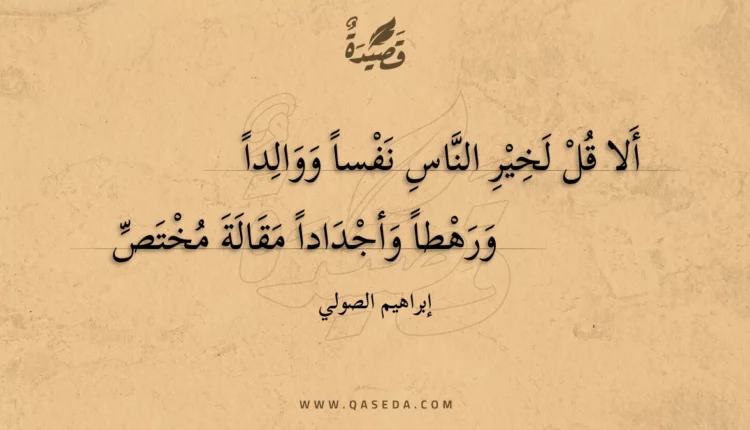 قَصِيْدَةٌ
أَلا قُلْ لَخِيْرِ النَّاسِ نَفْساً وَوَالِداً
وَرَهْطاً وَأجْدَاداً مَقَالَةَ مُخْتَصِّ
إبراهيم الصولي
WWW.QASEDA.COM